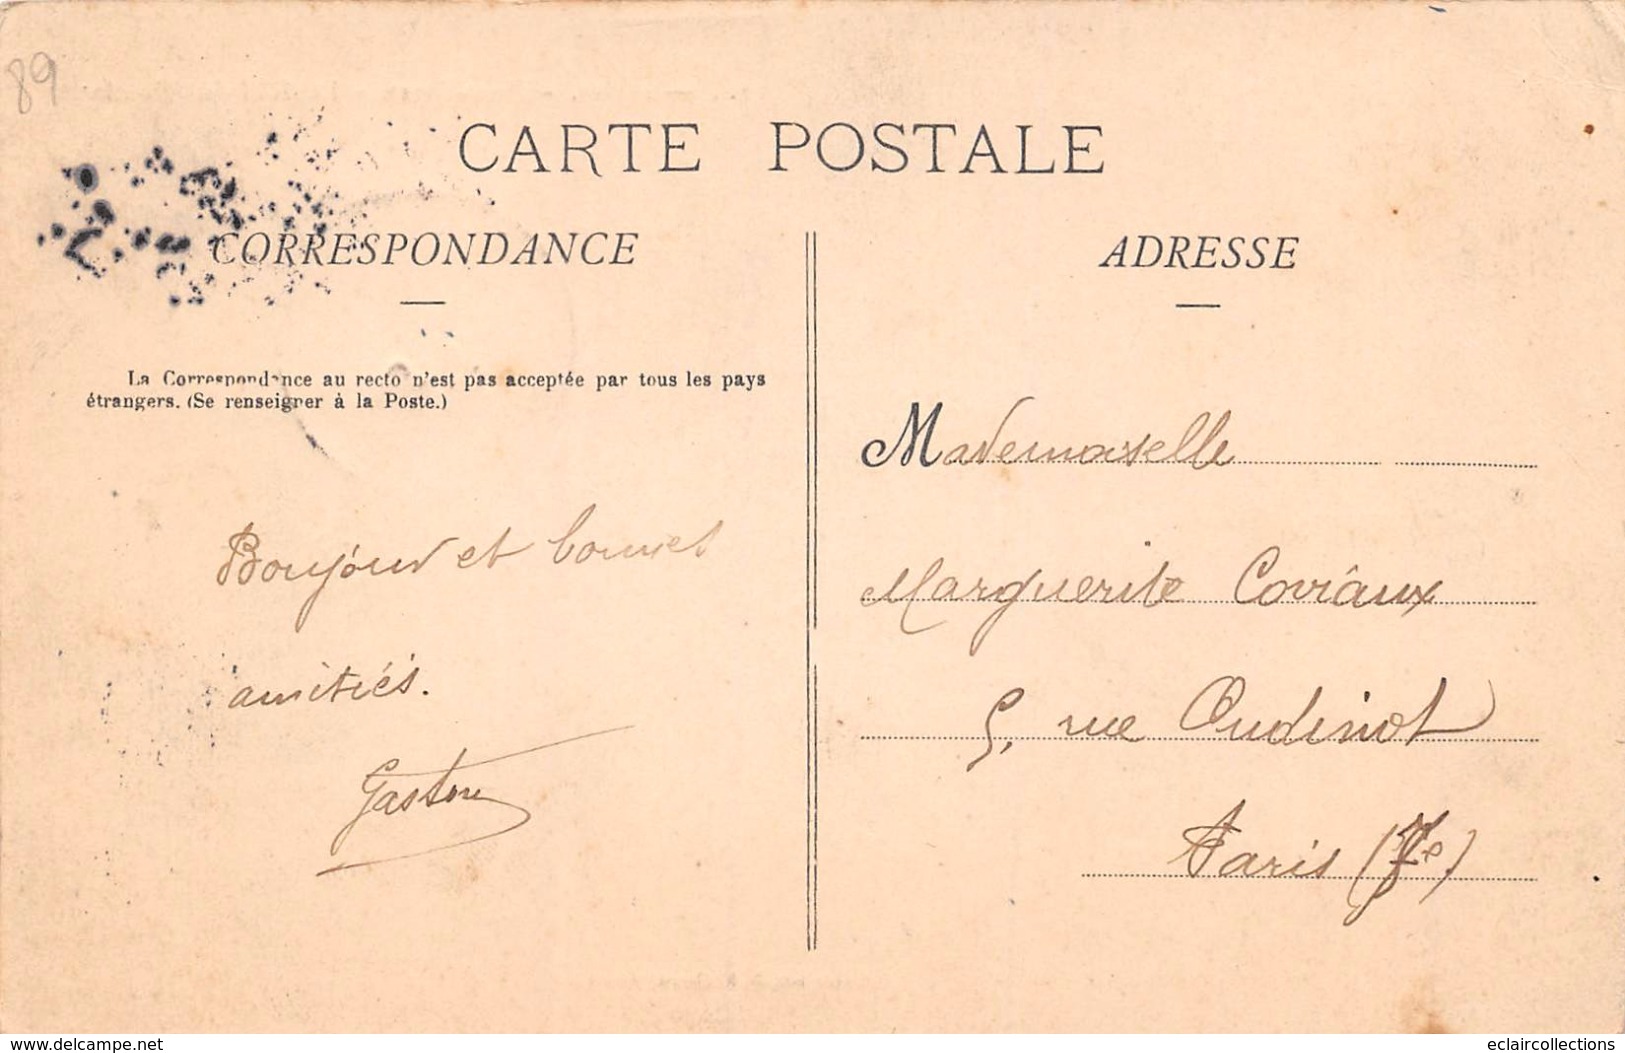 89
CARTE POSTALE
CORRESPONDANCE
La Correspondance au recto n'est pas acceptée par tous les pays
étrangers. (Se renseigner à la Poste.)
Bonjour et bonnes
amitiés.
Gaston
ADRESSE
Mademoiselle
Marguerite Coviaux
5, rue Oudinot
Paris (7e)
www.delcampe.net
eclaircollections